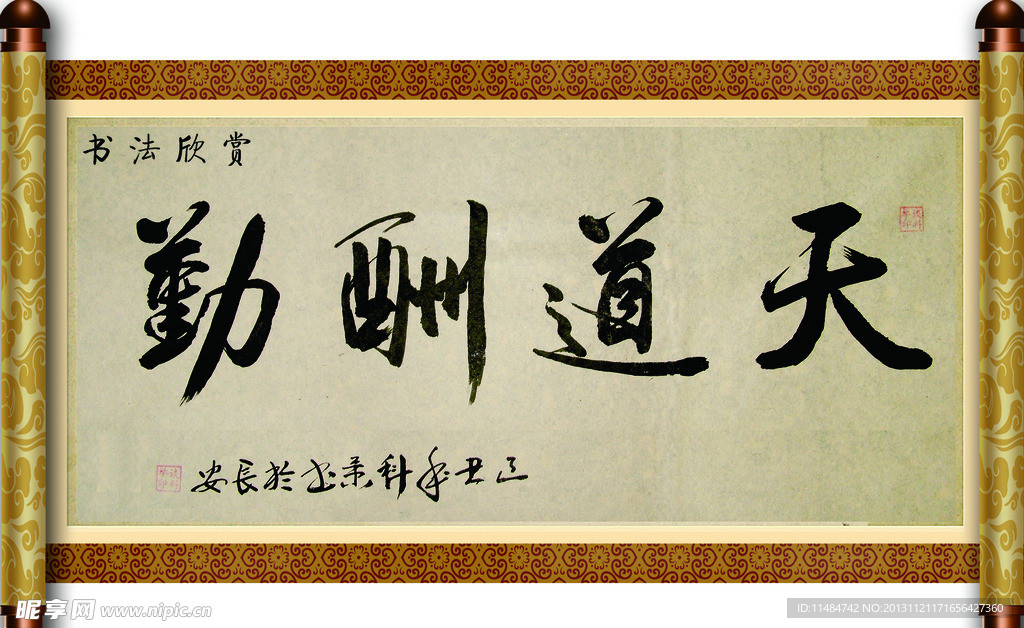 书法欣赏
天道酬勤
丑年科书於長安
昵享网 www.nipic.cn
ID:11484742 NO:20131121171656427360